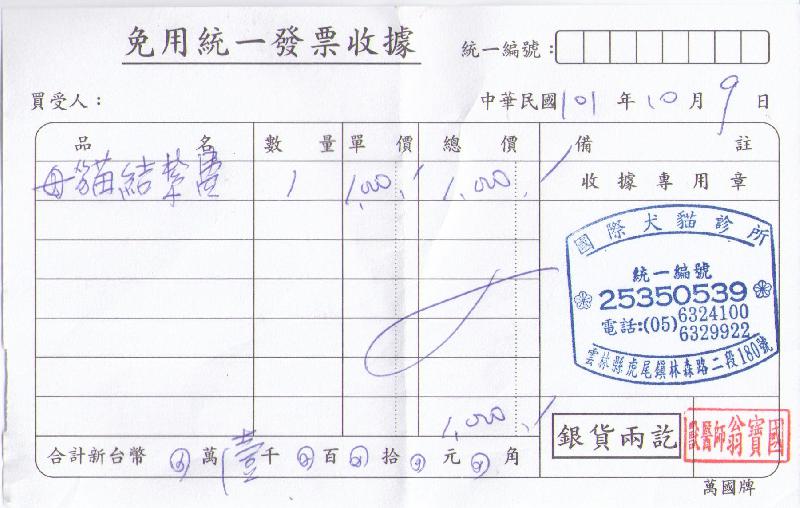 免用統一發票收據 統一編號：
買受人： 中華民國 101 年 10 月 9 日
品名 數量 單價 總價 備註
母貓結紮 1 1,000 1,000 收據專用章
國際犬貓診所
統一編號
25350539
電話:(05) 6324100
6329922
雲林縣虎尾鎮林森路二段180號
1,000
銀貨兩訖
獸醫師翁寶國
合計新台幣 0 萬 壹 千 0 百 0 拾 0 元 0 角
萬國牌